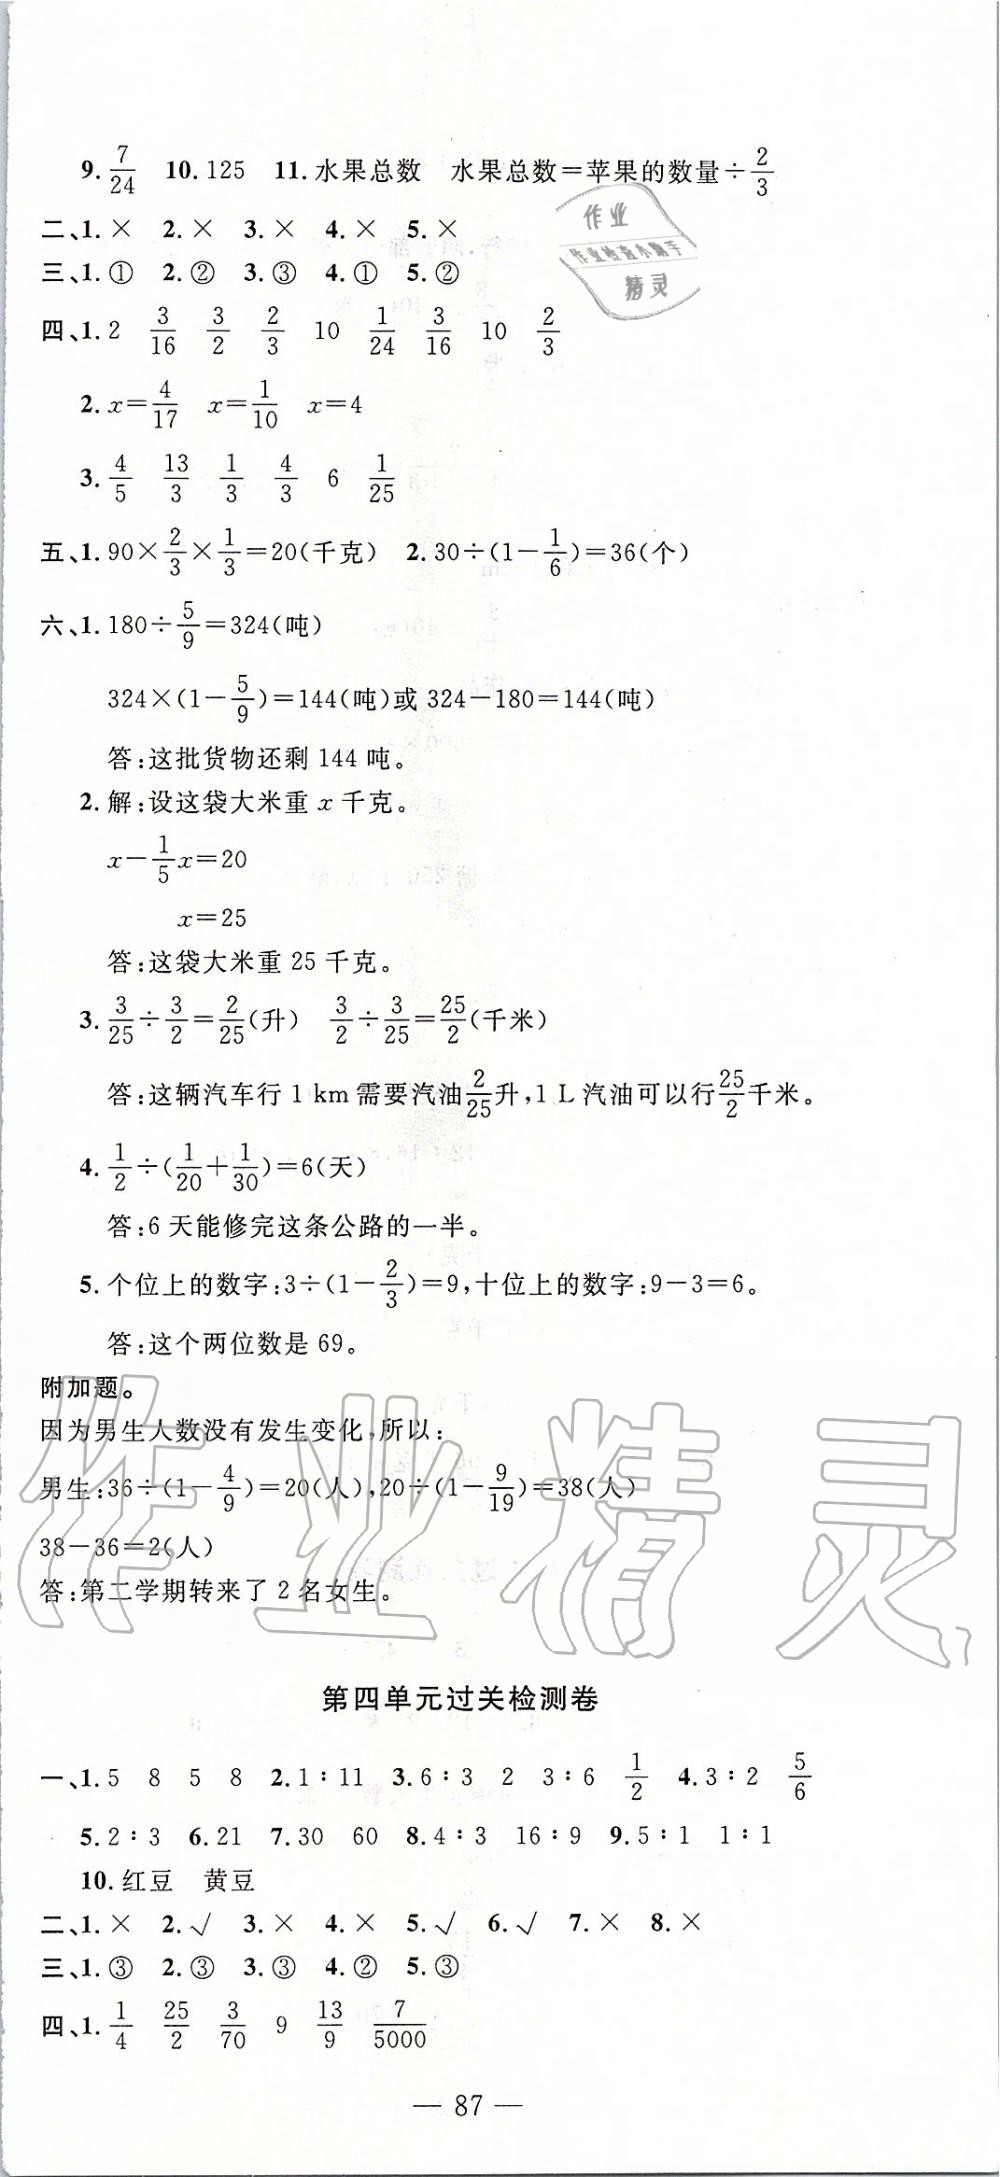 9. 7/24 10. 125 11. 水果总数 水果总数=苹果的数量÷2/3
二、1. × 2. × 3. × 4. × 5. ×
三、1. ① 2. ② 3. ③ 4. ① 5. ②
四、1. 2 3/16 3/2 2/3 10 1/24 3/16 10 2/3
2. x=4/17 x=1/10 x=4
3. 4/5 13/3 1/3 4/3 6 1/25
五、1. 90×2/3×1/3=20(千克) 2. 30÷(1-1/6)=36(个)
六、1. 180÷5/9=324(吨)
324×(1-5/9)=144(吨)或 324-180=144(吨)
答:这批货物还剩 144 吨。
2. 解:设这袋大米重 x 千克。
x-1/5x=20
x=25
答:这袋大米重 25 千克。
3. 3/25÷3/2=2/25(升) 3/2÷3/25=25/2(千米)
答:这辆汽车行 1 km 需要汽油2/25升,1 L 汽油可以行25/2千米。
4. 1/2÷(1/20+1/30)=6(天)
答:6 天能修完这条公路的一半。
5. 个位上的数字:3÷(1-2/3)=9,十位上的数字:9-3=6。
答:这个两位数是 69。
附加题。
因为男生人数没有发生变化,所以:
男生:36÷(1-4/9)=20(人),20÷(1-9/19)=38(人)
38-36=2(人)
答:第二学期转来了 2 名女生。
第四单元过关检测卷
一、1. 5 8 5 8 2. 1∶11 3. 6∶3 2 3∶6 1/2 4. 3∶2 5/6
5. 2∶3 6. 21 7. 30 60 8. 4∶3 16∶9 9. 5∶1 1∶1
10. 红豆 黄豆
二、1. × 2. √ 3. × 4. × 5. √ 6. √ 7. × 8. ×
三、1. ③ 2. ③ 3. ③ 4. ② 5. ③
四、1. 1/4 25/2 3/70 9 13/9 7/5000
— 87 —
作业
作业检查小助手
精灵
作业精灵